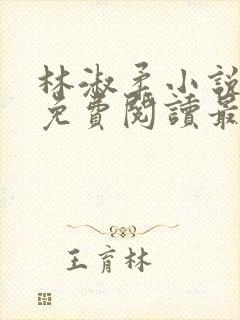 林淑柔小說
免費閱讀最
王育林